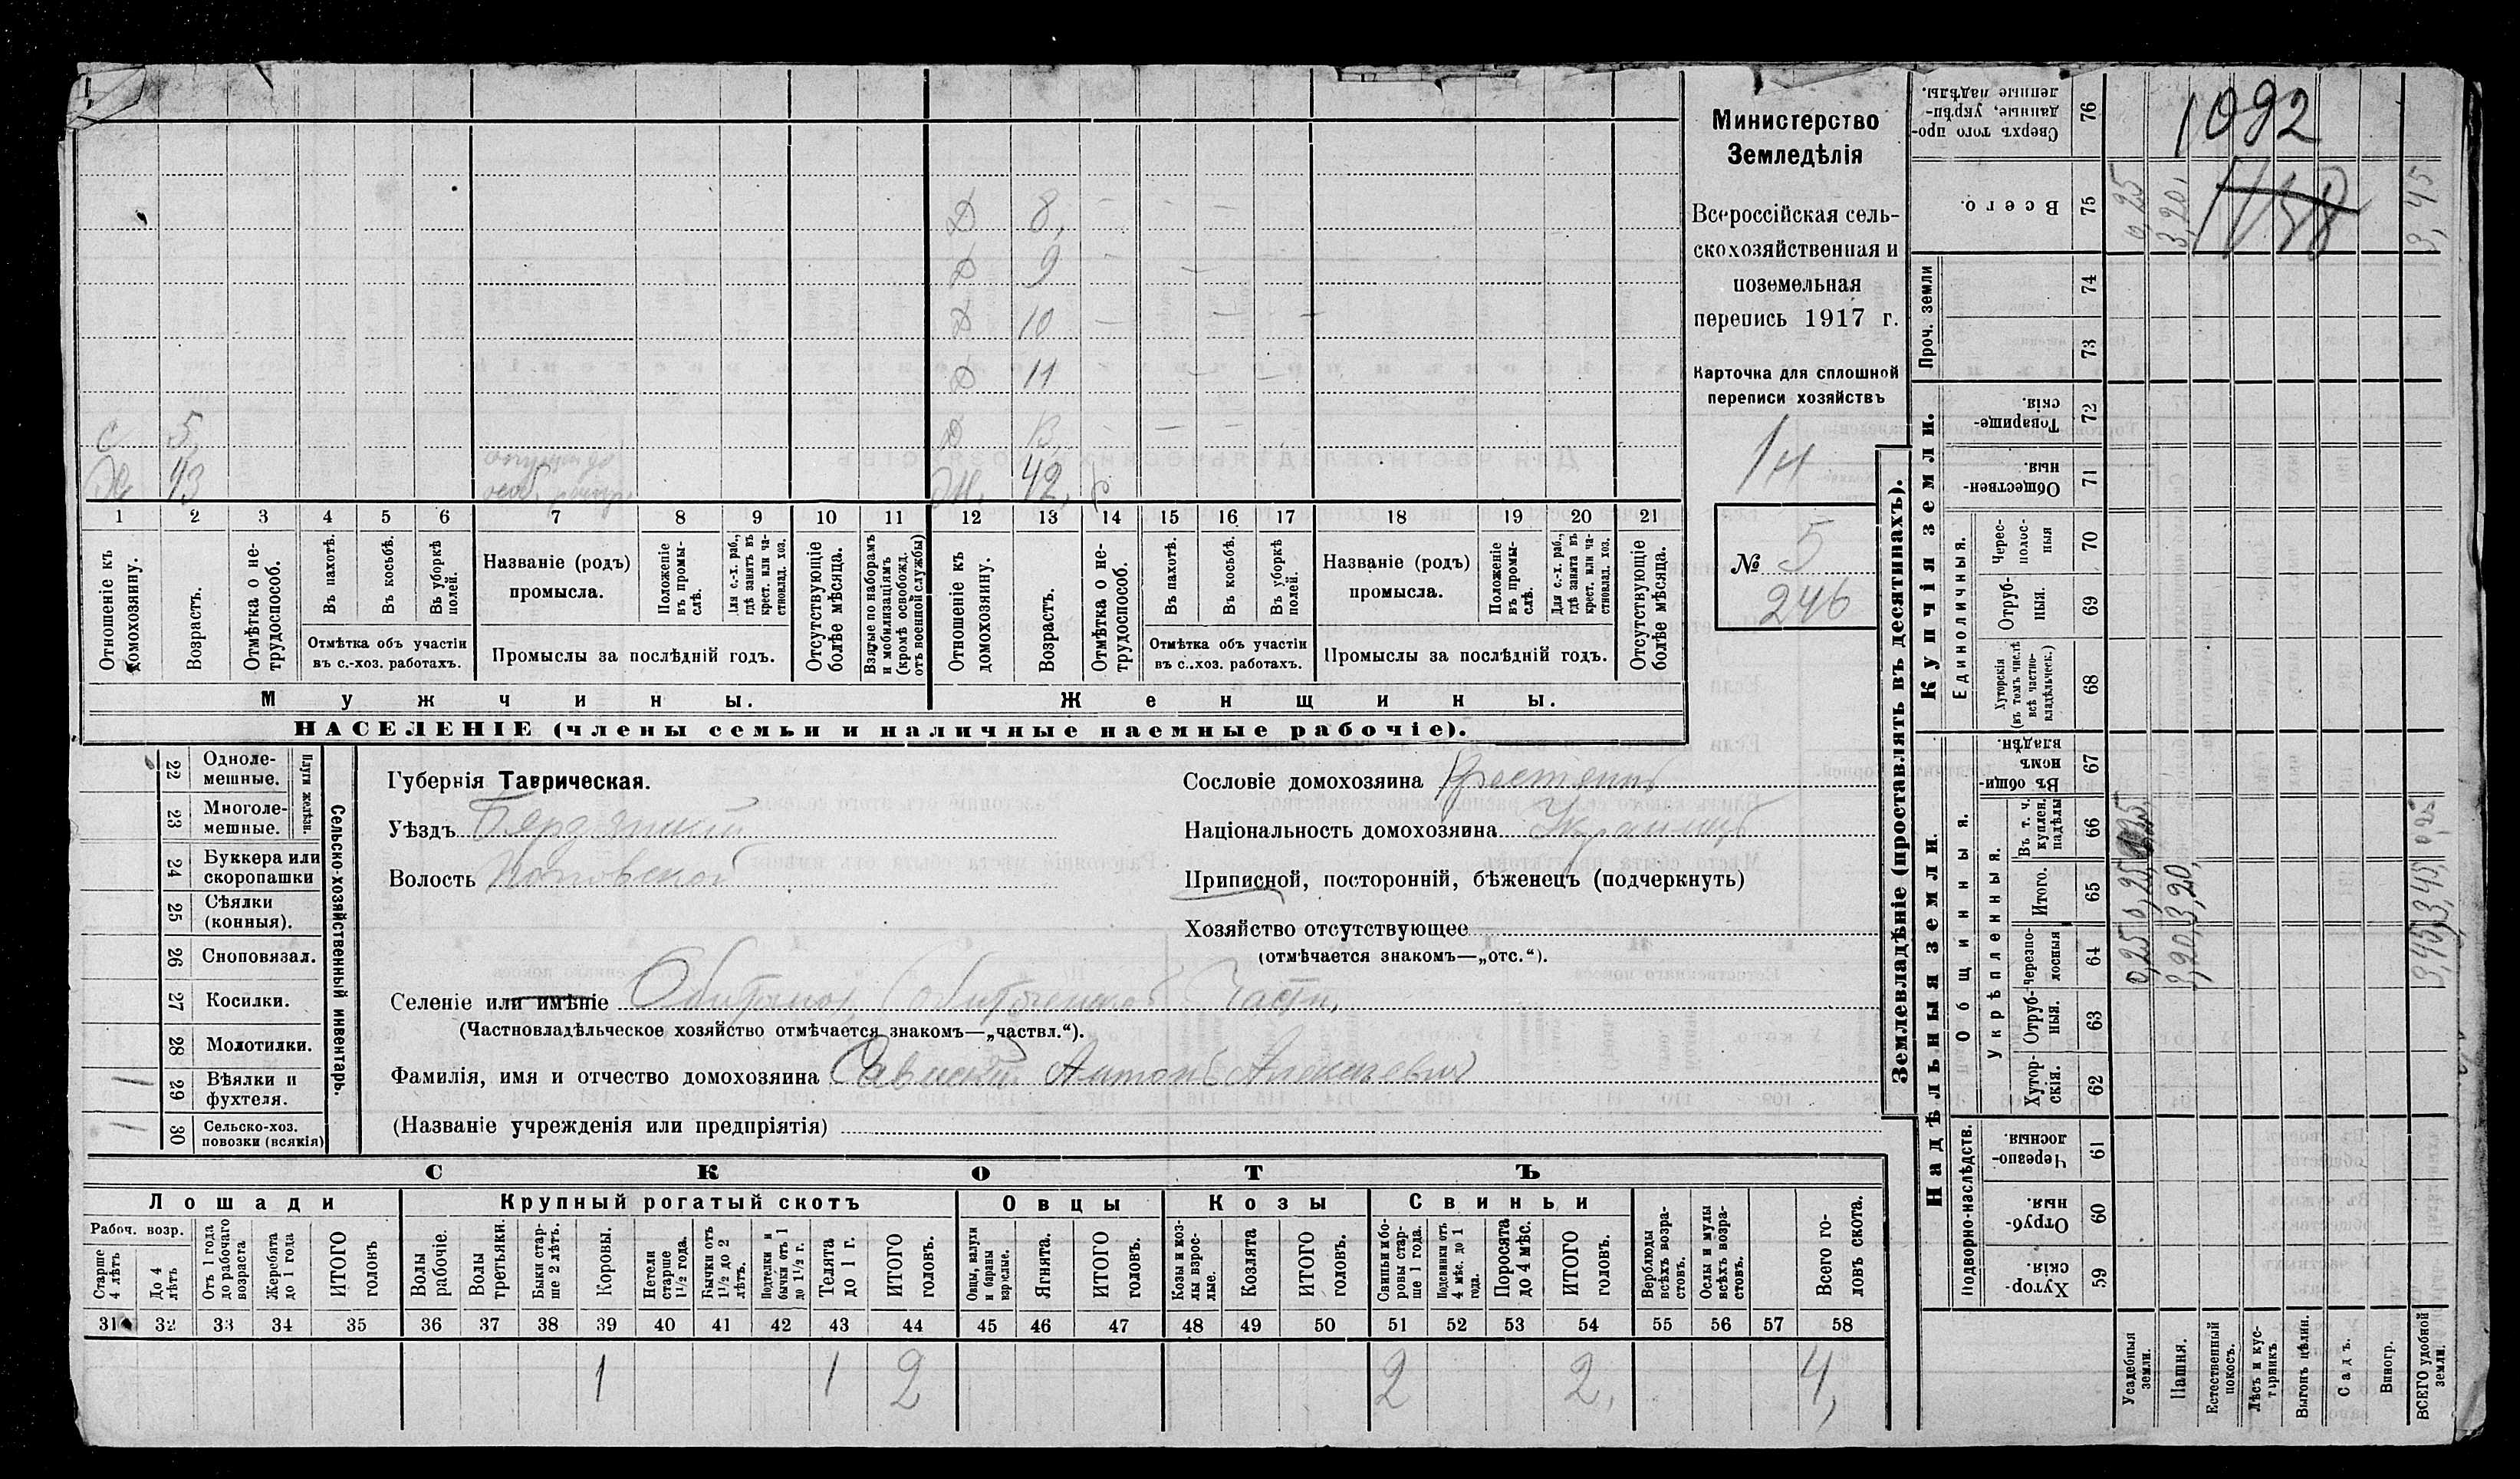 Министерство
Земледѣлія
Всероссійская сель-
скохозяйственная и
поземельная
перепись 1917 г.
Карточка для сплошной
переписи хозяйствъ
14
№ 5
246
С 5
43
Д 8
Д 9
Д 10
Д 11
Д 13
42 р
1 2 3 4 5 6 7 8 9 10 11 12 13 14 15 16 17 18 19 20 21
Отношеніе къ домохозяину.
Возрастъ.
Отмѣтка о не-трудоспособ.
Въ пахотѣ.
Въ косьбѣ.
Въ уборкѣ полей.
Отмѣтка объ участіи
въ с.-хоз. работахъ.
Названіе (родъ)
промысла.
Положеніе въ промы-слѣ.
Для с.-х. раб., гдѣ занятъ въ крест. или ча-стновлад. хоз.
Промыслы за послѣдній годъ.
Отсутствующіе болѣе мѣсяца.
Взятые по наборамъ и мобилизаціямъ (кромѣ освобожд. отъ военной службы)
Отношеніе къ домохозяину.
Возрастъ.
Отмѣтка о не-трудоспособ.
Въ пахотѣ.
Въ косьбѣ.
Въ уборкѣ полей.
Отмѣтка объ участіи
въ с.-хоз. работахъ.
Названіе (родъ)
промысла.
Положеніе въ промы-слѣ.
Для с.-х. раб., гдѣ занята въ крест. или ча-стновлад. хоз.
Промыслы за послѣдній годъ.
Отсутствующіе болѣе мѣсяца.
Мужчины.
Женщины.
НАСЕЛЕНІЕ (члены семьи и наличные наемные рабочіе).
Сельско-хозяйственный инвентарь.
Плуги желѣзн.
22 Одноле-мешные.
23 Многоле-мешные.
24 Буккера или скоропашки
25 Сѣялки (конныя).
26 Сноповязал.
27 Косилки.
28 Молотилки.
1 29 Вѣялки и фухтеля.
1 30 Сельско-хоз. повозки (всякія)
Губернія Таврическая.
Уѣздъ Бердянский
Волость Поповской
Сословіе домохозяина Крестянинъ
Національность домохозяина Украинецъ
Приписной, посторонній, бѣженецъ (подчеркнуть)
Хозяйство отсутствующее
(отмѣчается знакомъ—„отс.“).
Селеніе или имѣніе Обиточной части,
(Частновладѣльческое хозяйство отмѣчается знакомъ—„частвл.“).
Фамилія, имя и отчество домохозяина Антонъ Алексѣевич
(Названіе учрежденія или предпріятія)
СКОТЪ
Лошади
Крупный рогатый скотъ
Овцы
Козы
Свиньи
Рабоч. возр.
Старше 4 лѣтъ
До 4 лѣтъ
Отъ 1 года до рабочаго возраста
Жеребята до 1 года
ИТОГО головъ
Волы рабочіе.
Волы третьяки.
Быки стар-ше 2 лѣтъ.
Коровы.
Нетели старше 1½ года.
Бычки отъ 1½ до 2 лѣтъ.
Подтелки и бычки отъ 1 до 1½ г.
Телята до 1 г.
ИТОГО головъ.
Овцы, валухи и бараны взрослые.
Ягнята.
ИТОГО головъ.
Козы и коз-лы взрос-лые.
Козлята
ИТОГО головъ.
Свиньи и бо-ровы стар-ше 1 года.
Подсвинки отъ 4 мѣс. до 1 года.
Поросята до 4 мѣс.
ИТОГО головъ.
Верблюды всѣхъ возра-стовъ.
Ослы и мулы всѣхъ возра-стовъ.
Всего го-ловъ скота.
31 32 33 34 35 36 37 38 39 40 41 42 43 44 45 46 47 48 49 50 51 52 53 54 55 56 57 58
1 1 2 2 2, 4,
Землевладѣніе (проставлять въ десятинахъ).
Надѣльныя земли.
Купчія земли.
Проч. земли
Подворно-наслѣдств.
Общинныя.
Укрѣпленныя.
Единоличныя.
76 Сверхъ того про-данные, укрѣп-ленные надѣлы.
1092
75 Всего.
0,25
3,20,
1158
3,45
74
73
72 Товарище-скія.
71 Обществен-ныя.
70 Черес-полос-ныя
69 Отруб-ныя.
68 Хуторскія (въ томъ числѣ всѣ частно-владѣльческ.)
67 Въ общин-номъ владѣн.
66 Въ т. ч. куплен. надѣлы
0,25
65 Итого.
0,25
3,20,
3,45,
64 Черезпо-лосныя
0,25
3,20
3,45
63 Отруб-ныя.
62 Хутор-скія.
61 Черезпо-лосныя.
60 Отруб-ныя.
59 Хутор-скія.
Усадебныя земли.
Пашня.
Естественный покосъ.
Лѣсъ и кус-тарникъ
Выгонъ цѣлин.
Садъ.
Виногр.
ВСЕГО удобной земли.